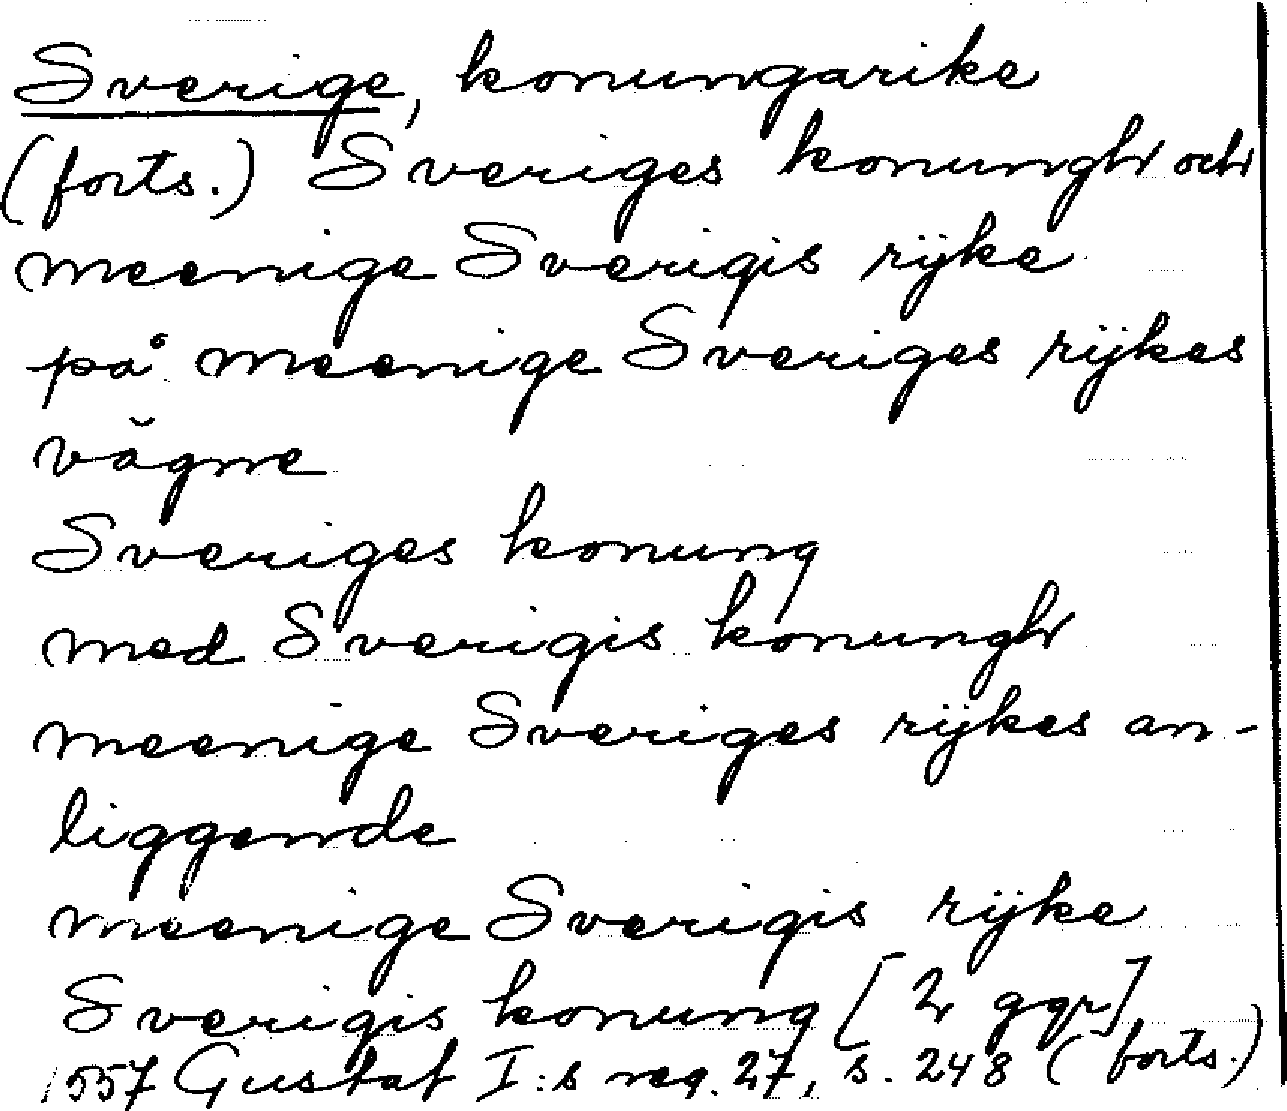 Sverige, konungarike
(forts.) Sveriges konungh och
meenige Sverigis rijke
på meenige Sveriges rijkes
vägne
Sveriges konung
med Sverigis konungh
meenige Sveriges rijkes an-
liggende
meenige Sverigis rijke
Sverigis konung [2 ggr]
1557 Gustaf I:s reg. 27, s. 248 (forts.)